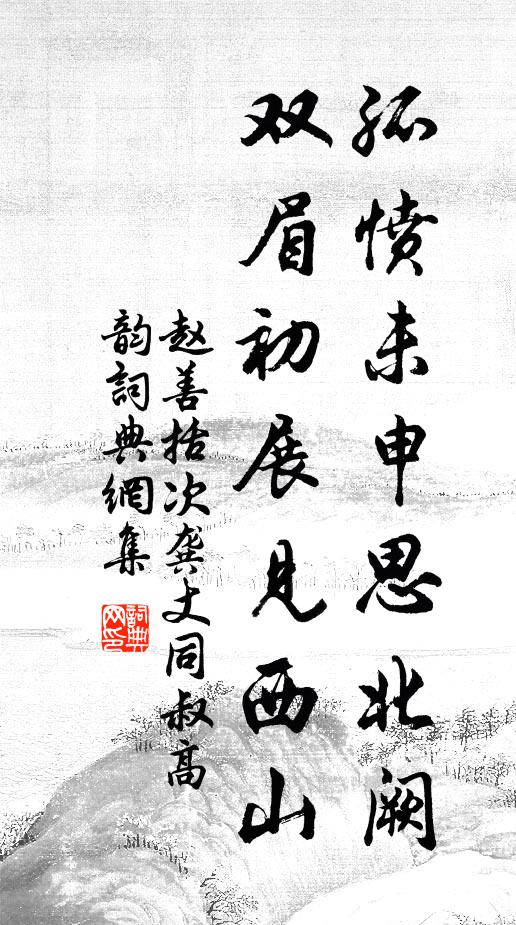 孤愤未申思北阙
双眉初展见西山
赵善括次龚丈同叔高
韵词典網集
詞典網印